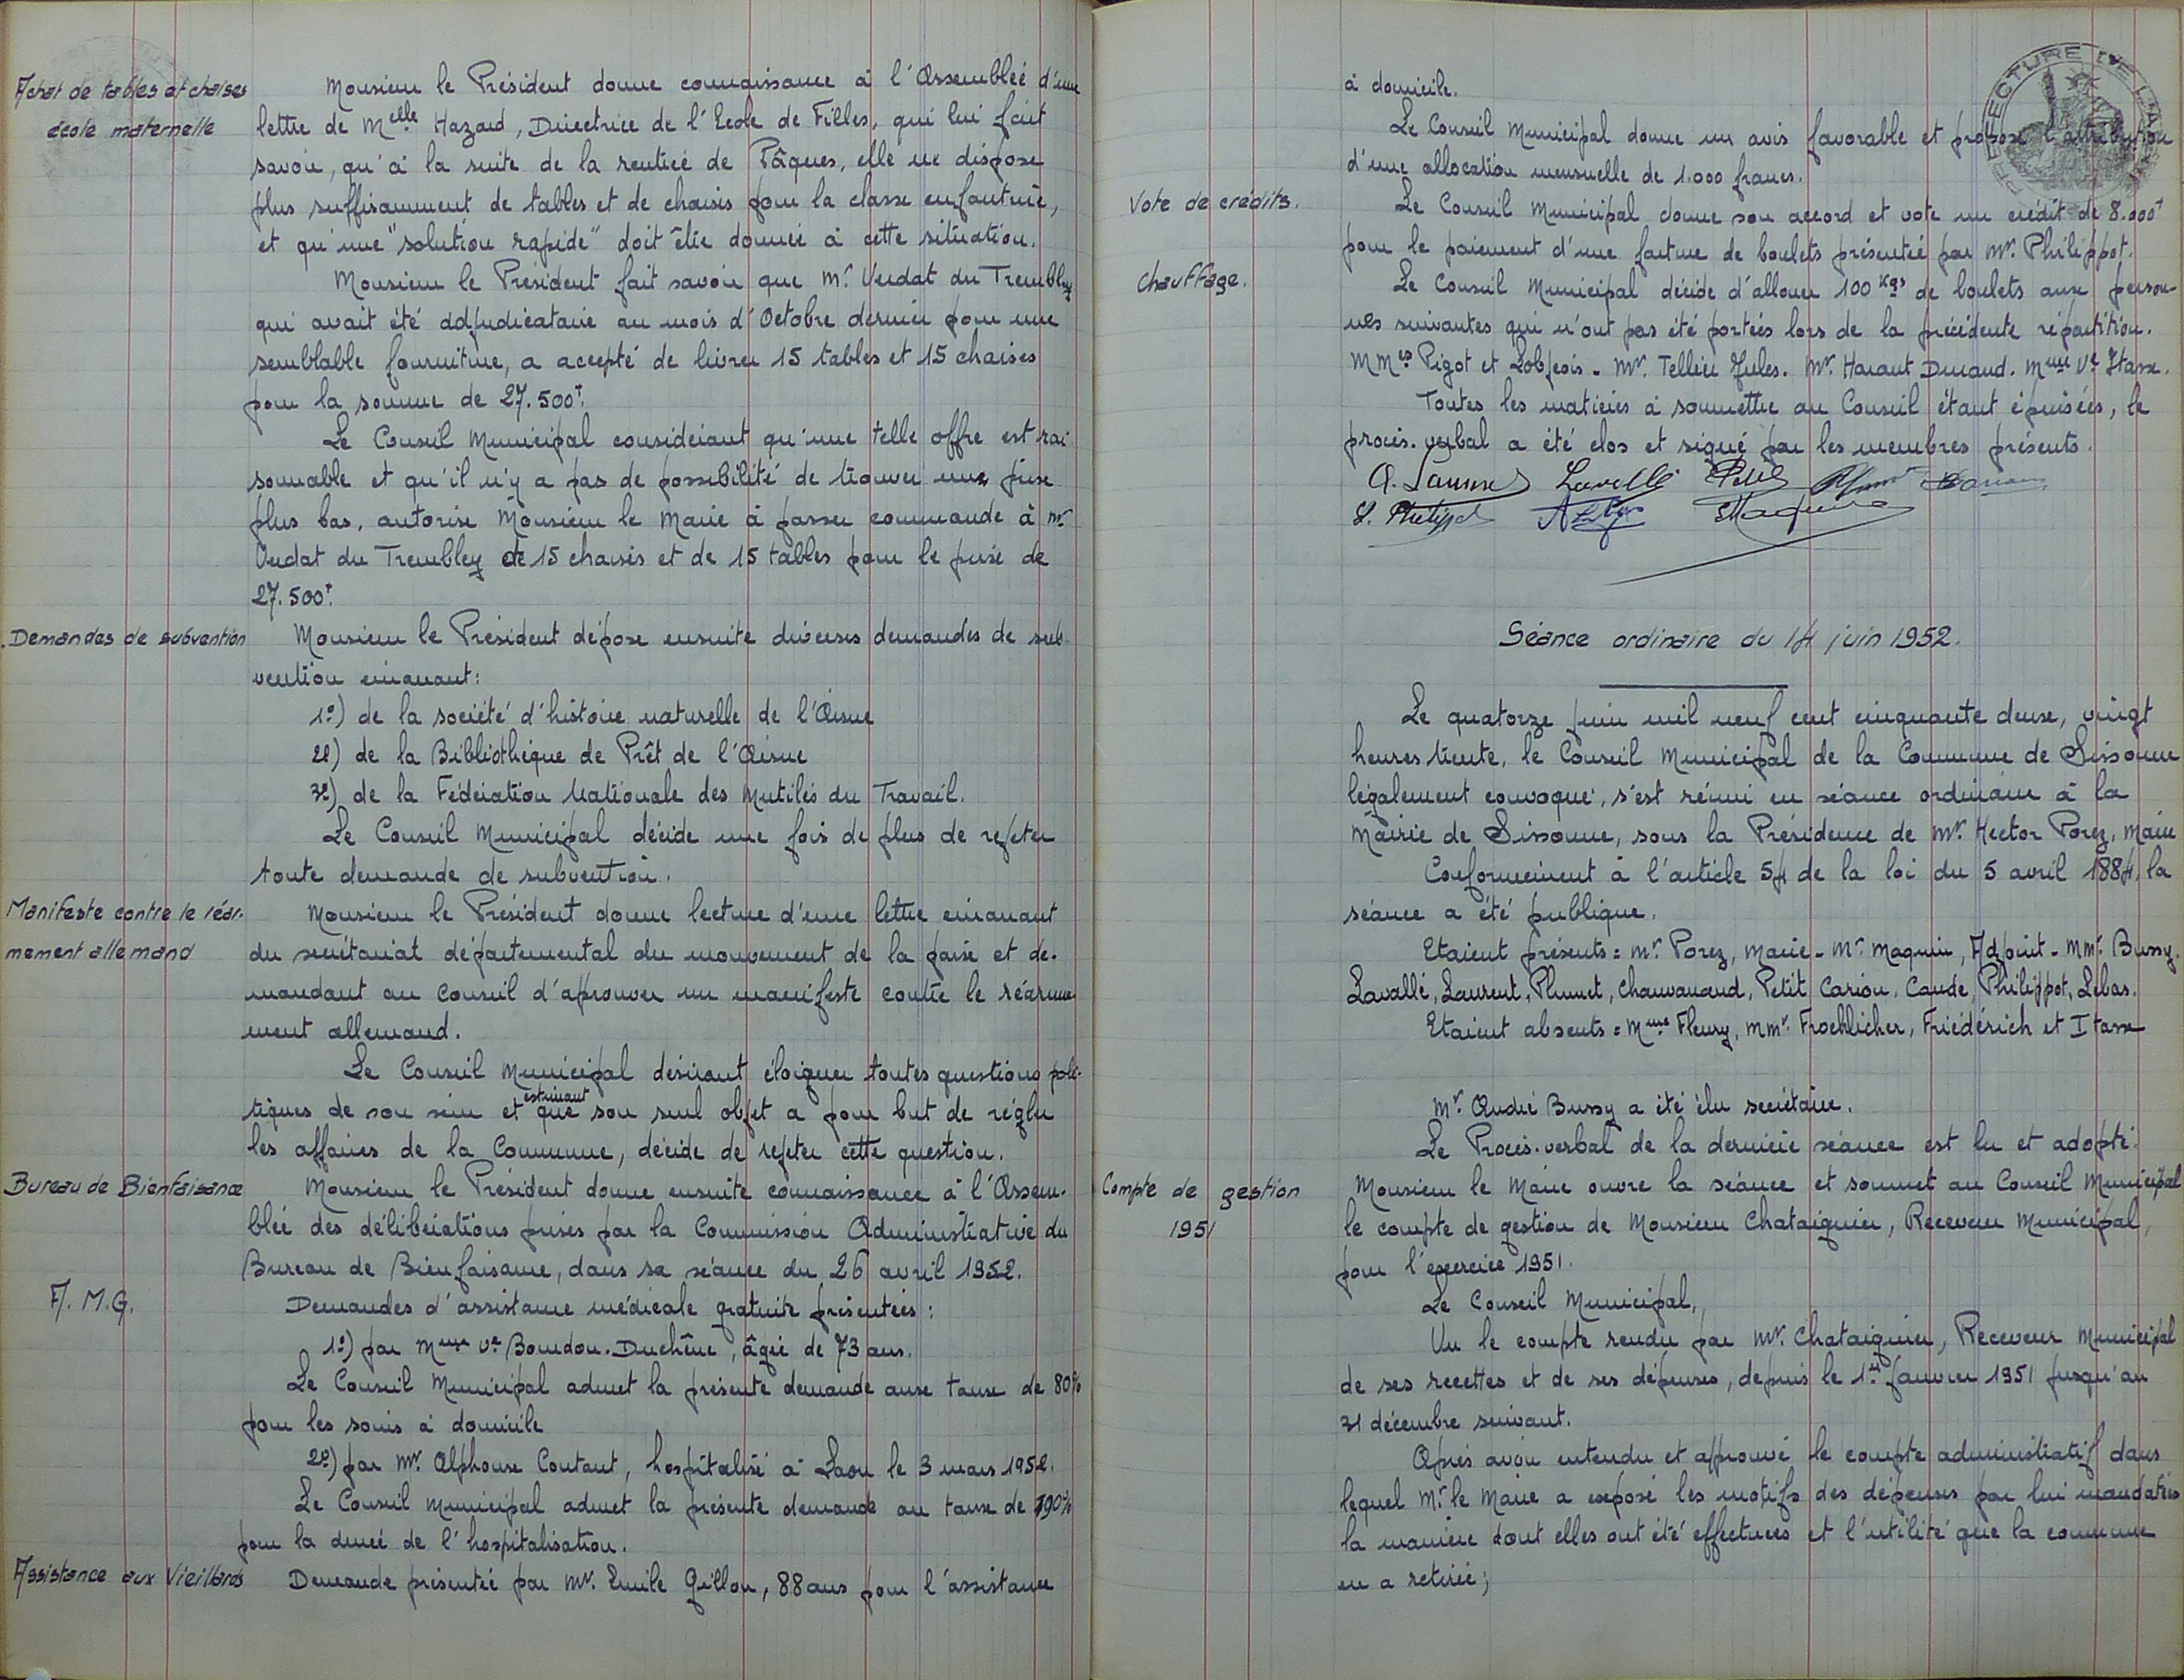 Achat de tables et chaises
école maternelle
Monsieur le Président donne connaissance à l'Assemblée d'une
lettre de Melle Hazard, Directrice de l'Ecole de Filles, qui lui fait
savoir, qu'à la suite de la rentrée de Pâques, elle ne dispose
plus suffisamment de tables et de chaises pour la classe enfantine,
et qu'une "solution rapide" doit être donnée à cette situation.
Monsieur le Président fait savoir que Mr. Verdat du Trembley
qui avait été adjudicataire au mois d'Octobre dernier pour une
semblable fourniture, a accepté de livrer 15 tables et 15 chaises
pour la somme de 27.500f.
Le Conseil Municipal considérant qu'une telle offre est rai
sonnable et qu'il n'y a pas de possibilité de trouver un prix
plus bas, autorise Monsieur le Maire à passer commande à Mr
Verdat du Trembley de 15 chaises et de 15 tables pour le prix de
27.500f.
Demandes de subvention
Monsieur le Président dépose ensuite diverses demandes de sub-
vention émanant:
1º) de la société d'histoire naturelle de l'Aisne
2º) de la Bibliothèque de Prêt de l'Aisne
3º) de la Fédération Nationale des Mutilés du Travail.
Le Conseil Municipal décide une fois de plus de rejeter
toute demande de subvention.
Manifeste contre le réar-
mement allemand
Monsieur le Président donne lecture d'une lettre émanant
du secrétariat départemental du mouvement de la paix et de-
mandant au Conseil d'approuver un manifeste contre le réarme
ment allemand.
Le Conseil Municipal désirant éloigner toutes questions poli-
estimant
tiques de son sein et que son seul objet a pour but de régler
les affaires de la Commune, décide de rejeter cette question.
Bureau de Bienfaisance
Monsieur le Président donne ensuite connaissance à l'Assem-
blée des délibérations prises par la Commission Administrative du
Bureau de Bienfaisance, dans sa séance du 26 avril 1952.
A.M.G.
Demandes d'assistance médicale gratuite présentées:
1º) par Mme Ve Bourdon-Duchêne, âgée de 73 ans.
Le Conseil Municipal admet la présente demande aux taux de 80%
pour les soins à domicile
2º) par Mr. Alphonse Coutant, hospitalisé à Laon le 3 mars 1952.
Le Conseil Municipal admet la présente demande au taux de 90%
pour la durée de l'hospitalisation.
Assistance aux Vieillards
Demande présentée par Mr. Emile Gillon, 88 ans pour l'assistance
à domicile.
Le Conseil Municipal donne un avis favorable et propose l'attribution
d'une allocation mensuelle de 1.000 francs.
Vote de crédits.
Le Conseil Municipal donne son accord et vote un crédit de 8.000f
pour le paiement d'une facture de boulets présentée par Mr. Philippot.
Chauffage.
Le Conseil Municipal décide d'allouer 100 Kgs de boulets aux person-
nes suivantes qui n'ont pas été portées lors de la précédente répartition.
MMes Pigot et Lobjois. Mr. Tellier Jules. Mr. Harant Durand. Mme Ve Itasse.
Toutes les matières à soumettre au Conseil étant épuisées, le
procès-verbal a été clos et signé par les membres présents.
Séance ordinaire du 14 juin 1952.
Le quatorze juin mil neuf cent cinquante deux, vingt
heures trente, le Conseil Municipal de la Commune de Sissonne
légalement convoqué, s'est réuni en séance ordinaire à la
Mairie de Sissonne, sous la Présidence de Mr. Hector Porez, Maire
Conformément à l'article 54 de la loi du 5 avril 1884, la
séance a été publique.
Etaient présents: Mr. Porez, Maire - Mr. Maquin, Adjoint - MMr. Bussy,
Lavallé, Laurent, Plumet, Chauvanaud, Petit, Cariou, Caude, Philippot, Lebas.
Etaient absents: Mme Fleury, MMr. Froehlicher, Friédérich et Itasse
Mr. André Bussy a été élu secrétaire.
Le Procès-verbal de la dernière séance est lu et adopté.
Compte de gestion
1951
Monsieur le Maire ouvre la séance et soumet au Conseil Municipal
le compte de gestion de Monsieur Chataignier, Receveur Municipal,
pour l'exercice 1951.
Le Conseil Municipal,
Vu le compte rendu par Mr. Chataignier, Receveur Municipal
de ses recettes et de ses dépenses, depuis le 1er janvier 1951 jusqu'au
31 décembre suivant.
Après avoir entendu et approuvé le compte administratif dans
lequel Mr. le Maire a exposé les motifs des dépenses par lui mandatées
la manière dont elles ont été effectuées et l'utilité que la commune
en a retirée;